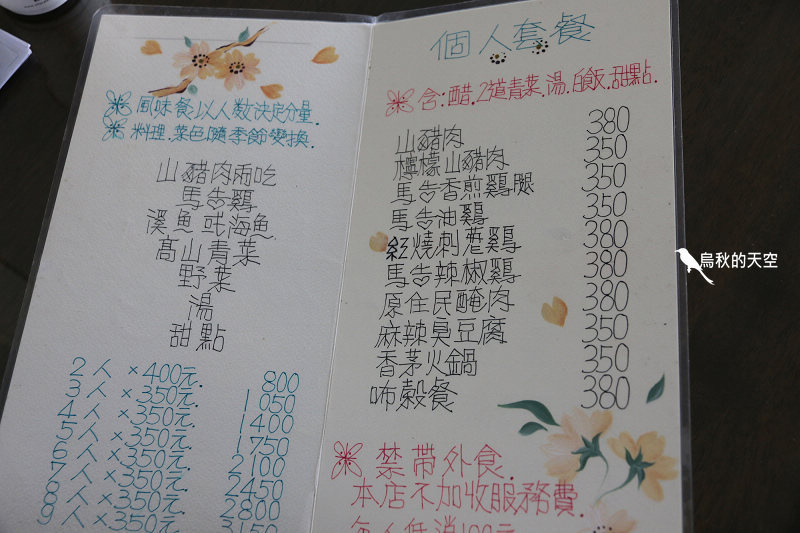 風味餐以人数決定分量.
料理.菜色.隨季節變換.
山豬肉兩吃
馬告雞
溪魚或海魚
高山青菜
野菜
湯
甜點
2人×400元. 800
3人×350元. 1050
4人×350元. 1400
5人×350元. 1750
6人×350元. 2100
7人×350元. 2450
8人×350元. 2800
9人×350元. 3150
個人套餐
含:醋.2道青菜.湯.白飯.甜點.
山豬肉 380
檸檬山豬肉 350
馬告香煎雞腿 350
馬告油雞 350
紅燒刺蔥雞 380
馬告辣椒雞 380
原住民醃肉 380
麻辣臭豆腐 350
香茅火鍋 350
咘穀餐 380
禁帶外食.
本店不加收服務費.
每人低消100元
烏秋的天空